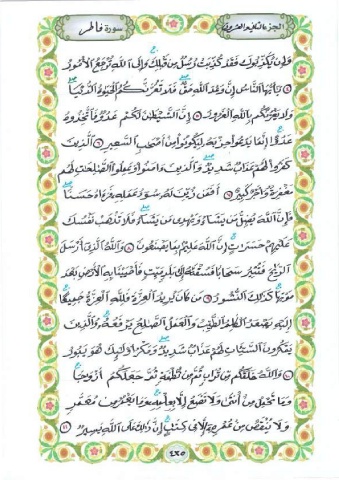 الجزء الثاني والعشرون
سورة فاطر
وَإِن يُكَذِّبُوكَ فَقَدْ كُذِّبَتْ رُسُلٌ مِّن قَبْلِكَ وَإِلَى اللَّهِ تُرْجَعُ الْأُمُورُ
يَا أَيُّهَا النَّاسُ إِنَّ وَعْدَ اللَّهِ حَقٌّ فَلَا تَغُرَّنَّكُمُ الْحَيَاةُ الدُّنْيَا
وَلَا يَغُرَّنَّكُم بِاللَّهِ الْغَرُورُ إِنَّ الشَّيْطَانَ لَكُمْ عَدُوٌّ فَاتَّخِذُوهُ
عَدُوًّا إِنَّمَا يَدْعُو حِزْبَهُ لِيَكُونُوا مِنْ أَصْحَابِ السَّعِيرِ الَّذِينَ
كَفَرُوا لَهُمْ عَذَابٌ شَدِيدٌ وَالَّذِينَ آمَنُوا وَعَمِلُوا الصَّالِحَاتِ لَهُم
مَّغْفِرَةٌ وَأَجْرٌ كَبِيرٌ أَفَمَن زُيِّنَ لَهُ سُوءُ عَمَلِهِ فَرَآهُ حَسَنًا
فَإِنَّ اللَّهَ يُضِلُّ مَن يَشَاءُ وَيَهْدِي مَن يَشَاءُ فَلَا تَذْهَبْ نَفْسُكَ
عَلَيْهِمْ حَسَرَاتٍ إِنَّ اللَّهَ عَلِيمٌ بِمَا يَصْنَعُونَ وَاللَّهُ الَّذِي أَرْسَلَ
الرِّيَاحَ فَتُثِيرُ سَحَابًا فَسُقْنَاهُ إِلَى بَلَدٍ مَّيِّتٍ فَأَحْيَيْنَا بِهِ الْأَرْضَ بَعْدَ
مَوْتِهَا كَذَلِكَ النُّشُورُ مَن كَانَ يُرِيدُ الْعِزَّةَ فَلِلَّهِ الْعِزَّةُ جَمِيعًا
إِلَيْهِ يَصْعَدُ الْكَلِمُ الطَّيِّبُ وَالْعَمَلُ الصَّالِحُ يَرْفَعُهُ وَالَّذِينَ
يَمْكُرُونَ السَّيِّئَاتِ لَهُمْ عَذَابٌ شَدِيدٌ وَمَكْرُ أُولَئِكَ هُوَ يَبُورُ
وَاللَّهُ خَلَقَكُم مِّن تُرَابٍ ثُمَّ مِن نُّطْفَةٍ ثُمَّ جَعَلَكُمْ أَزْوَاجًا
وَمَا تَحْمِلُ مِنْ أُنثَى وَلَا تَضَعُ إِلَّا بِعِلْمِهِ وَمَا يُعَمَّرُ مِن مُّعَمَّرٍ
وَلَا يُنقَصُ مِنْ عُمُرِهِ إِلَّا فِي كِتَابٍ إِنَّ ذَلِكَ عَلَى اللَّهِ يَسِيرٌ ١١
٤٣٥